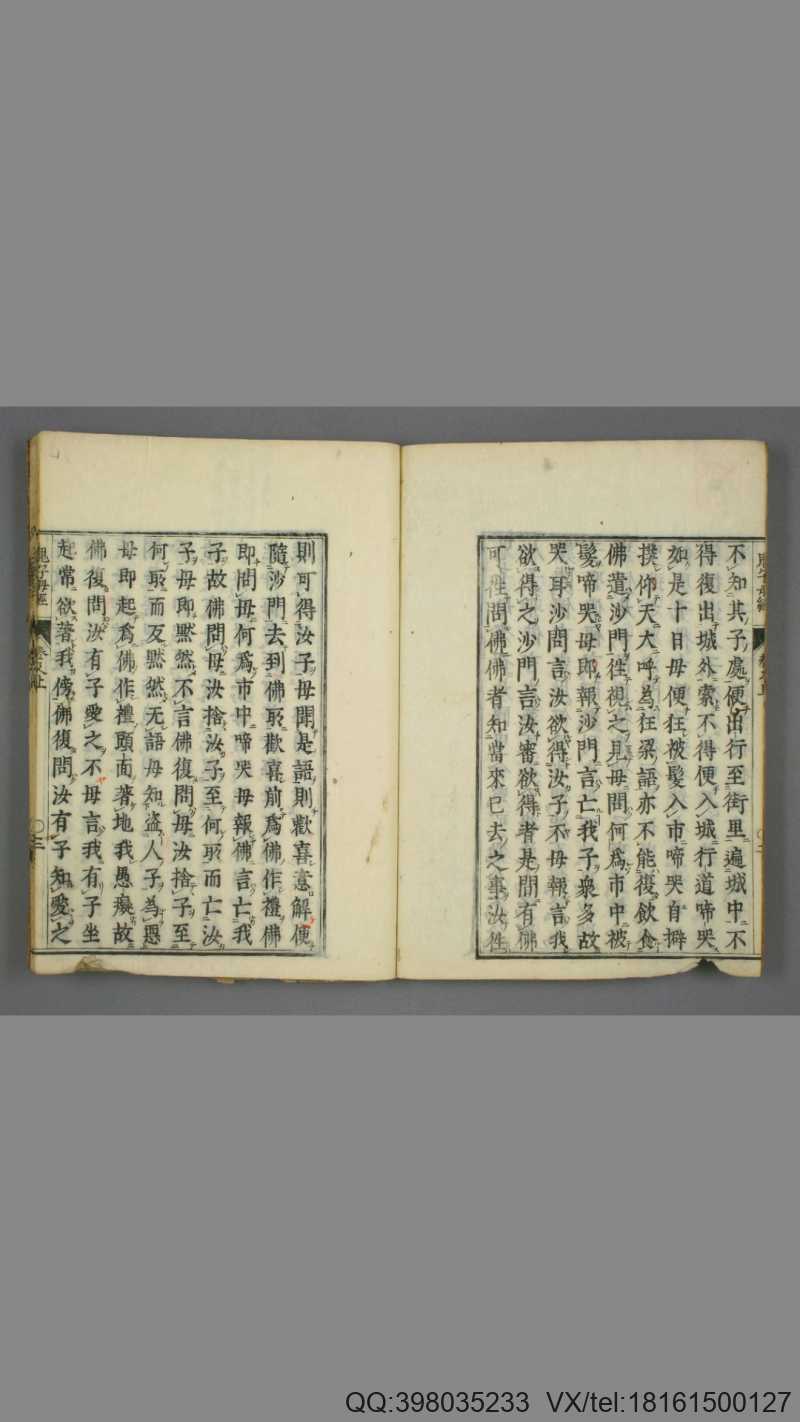 不知其子處便出行至街里遍城中不
得復出城外索不得便入城行道啼哭
如是十日母便狂被髮入市啼哭自擗
撲仰天大呼為狂梁語亦不能復飲食
佛遣沙門徃視之見母問何爲市中被
髮啼哭母即報沙門言亡我子衆多故
哭耳沙門言汝欲得汝子不母報言我
欲得之沙門言汝審欲得者是間有佛
可徃問佛佛者知當來已去之事汝徃
則可得汝子母聞是語則歡喜意解便
隨沙門去到佛所歡喜前爲佛作禮佛
即問母何爲市中啼哭母報佛言亡我
子故佛問母汝捨汝子至何所而亡汝
子母即黙然不言佛復問母汝捨子至
何所而反黙然无語母知盗人子為惡
母即起爲佛作禮頭面著地我愚癡故
佛復問汝有子愛之不母言我有子坐
起常欲著我傍佛復問汝有子知愛之
鬼子母經
三
QQ:398035233 VX/tel:18161500127